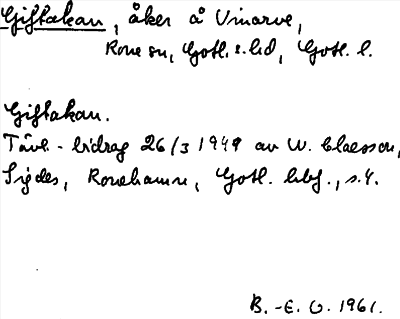 Giftakan, åker å Vinarve,
Rone sn, Gotl. s. hd, Gotl. l.
Giftakan.
Tävl.-bidrag 26/3 1949 av W. Claesson,
Sigdes, Ronehamn, Gotl. hbf., s. 4.
B.-E. O. 1961.